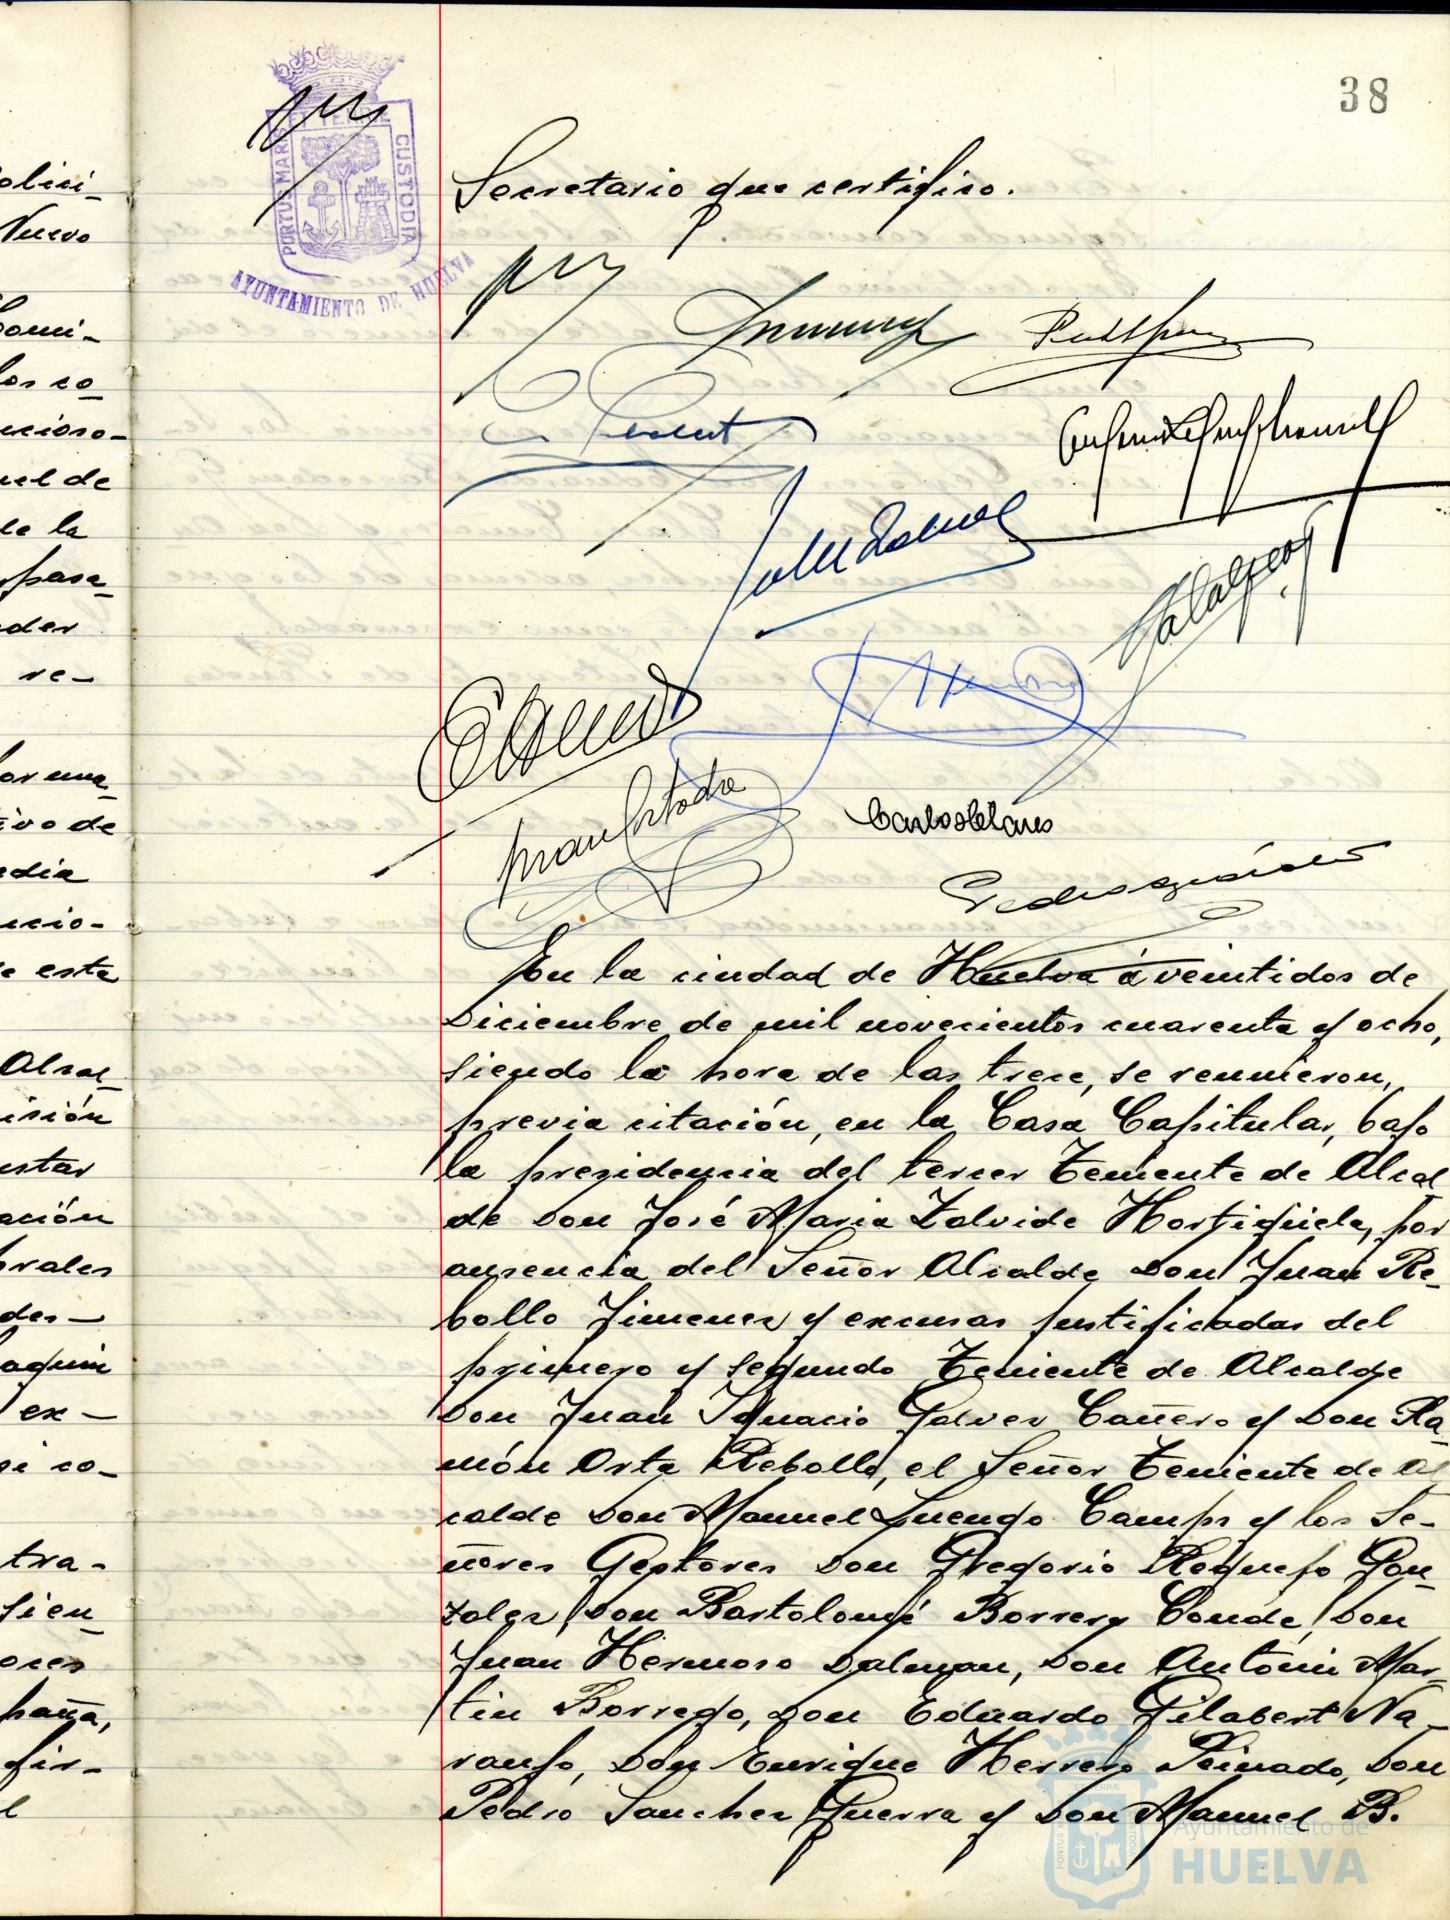 olici-
Nuevo
Comi-
los co
ucioso-
uel de
de la
pasa-
der
re-
por una
tivo de
edia
ucio-
e este
Alcal-
isión
ustar
ación
orales
des-
aquin
ex-
si co-
tra-
sien-
ores
paña,
fir-
l
38
PORTUS MARIS ET TERRE CUSTODIA
AYUNTAMIENTO DE HUELVA
Secretario que certifico.
Juan Cortada
Carlos
Pedro
En la ciudad de Huelva á veintidos de
Diciembre de mil novecientos cuarenta y ocho,
siendo la hora de las trece, se reunieron,
previa citación, en la Casa Capitular, bajo
la presidencia del tercer Teniente de Alcal
de Don José Maria Zalvide Hortigüela, por
ausencia del Señor Alcalde Don Juan Re-
bollo Jimenez y excusas justificadas del
primero y segundo Teniente de Alcalde
Don Juan Ignacio Galvez Cañero y Don Ra-
món Orta Rebollo, el Señor Teniente de Al
calde Don Manuel Luengo Camps y los Se-
ñores Gestores Don Gregorio Requejo Gon-
zalez, Don Bartolomé Borrero Conde, Don
Juan Hermoso Dalmau, Don Antonio Mar-
tin Borrego, Don Eduardo Gilabert Na-
ranjo, Don Enrique Herrero Peinado, Don
Pedro Sanchez Guerra y Don Manuel B.
Ayuntamiento de
HUELVA